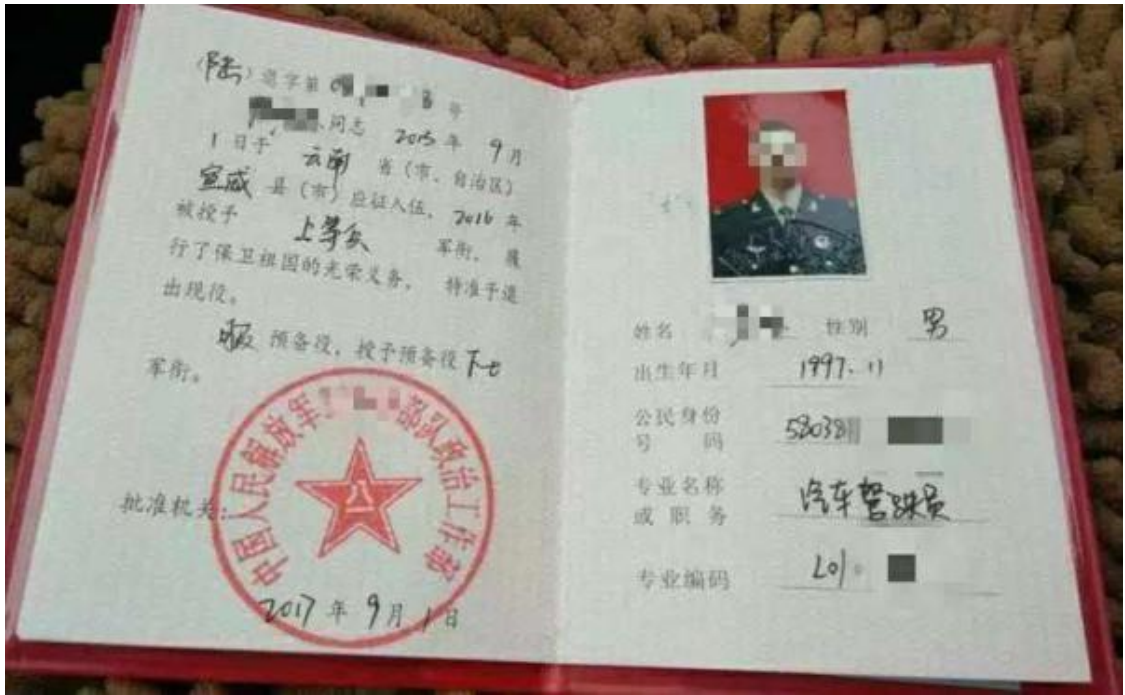 （陆）退字第0 8 号
同志 2015 年 9 月
1 日于 云南 省（市、自治区）
宣威 县（市）应征入伍，2016 年
被授予 上等兵 军衔，履
行了保卫祖国的光荣义务， 特准予退
出现役。
服 预备役，授予预备役下士
军衔。
中国人民解放军 部队政治工作部
八一
批准机关：
2017 年 9 月 1 日
姓名 性别 男
出生年月 1997.11
公民身份
号 码 53038
专业名称
或职务 汽车驾驶员
专业编码 L01